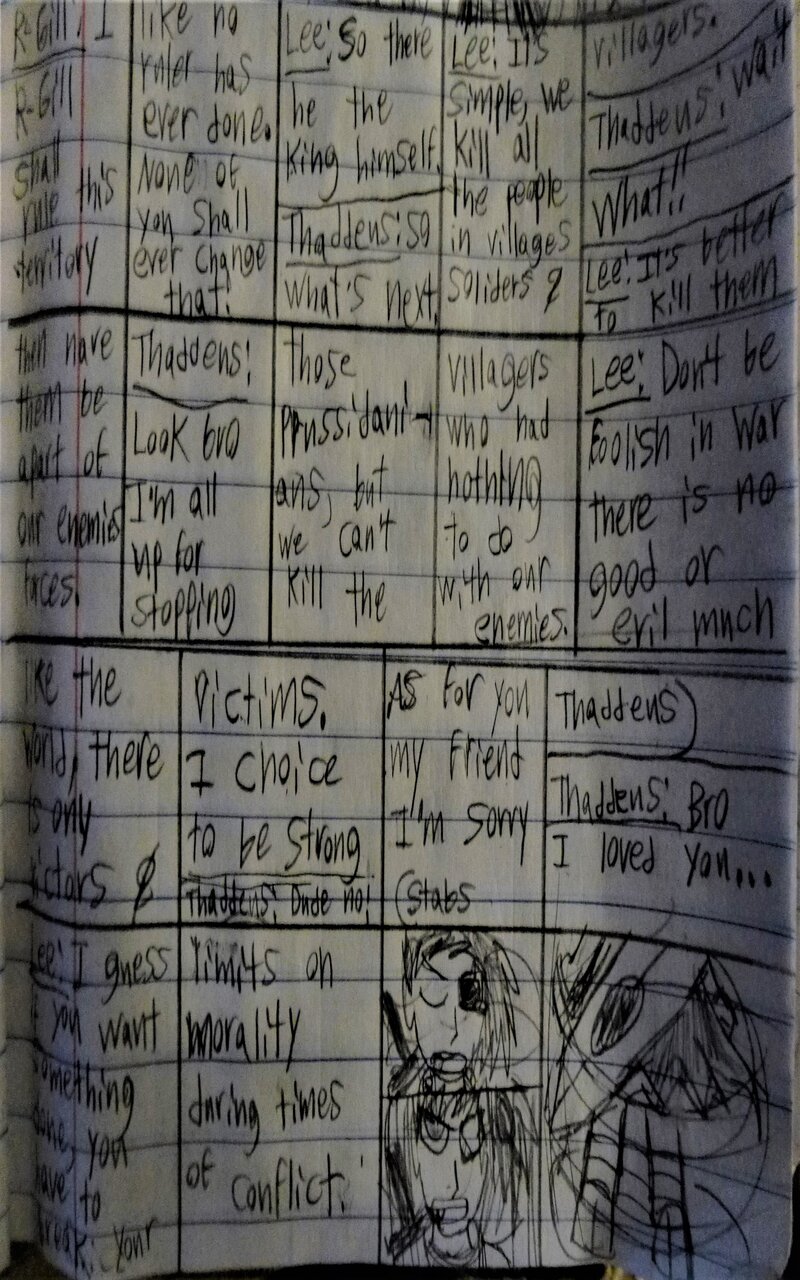 R-Gill: I
R-Gill
shall
rule this
territory
like no
ruler has
ever done.
None of
you shall
ever change
that!
Lee: So there
he the
King himself.
Thaddeus: So
what's next
Lee: It's
simple, we
kill all
the people
in villages
Soliders &
villagers.
Thaddeus: Wait
What!!
Lee: It's better
to kill them
then have
them be
apart of
our enemies
forces.
Thaddeus:
Look bro
I'm all
up for
stopping
those
Prussidani-
ans, but
we can't
kill the
villagers
who had
nothing
to do
with our
enemies.
Lee: Don't be
foolish in war
there is no
good or
evil much
like the
world, there
is only
victors &
Victims.
I choice
to be strong
Thaddeus: Dude no!
As for you
my friend
I'm sorry
(Stabs
Thaddeus)
Thaddeus: Bro
I loved you...
Lee: I guess
if you want
something
done, you
have to
break your
limits on
morality
during times
of conflict.